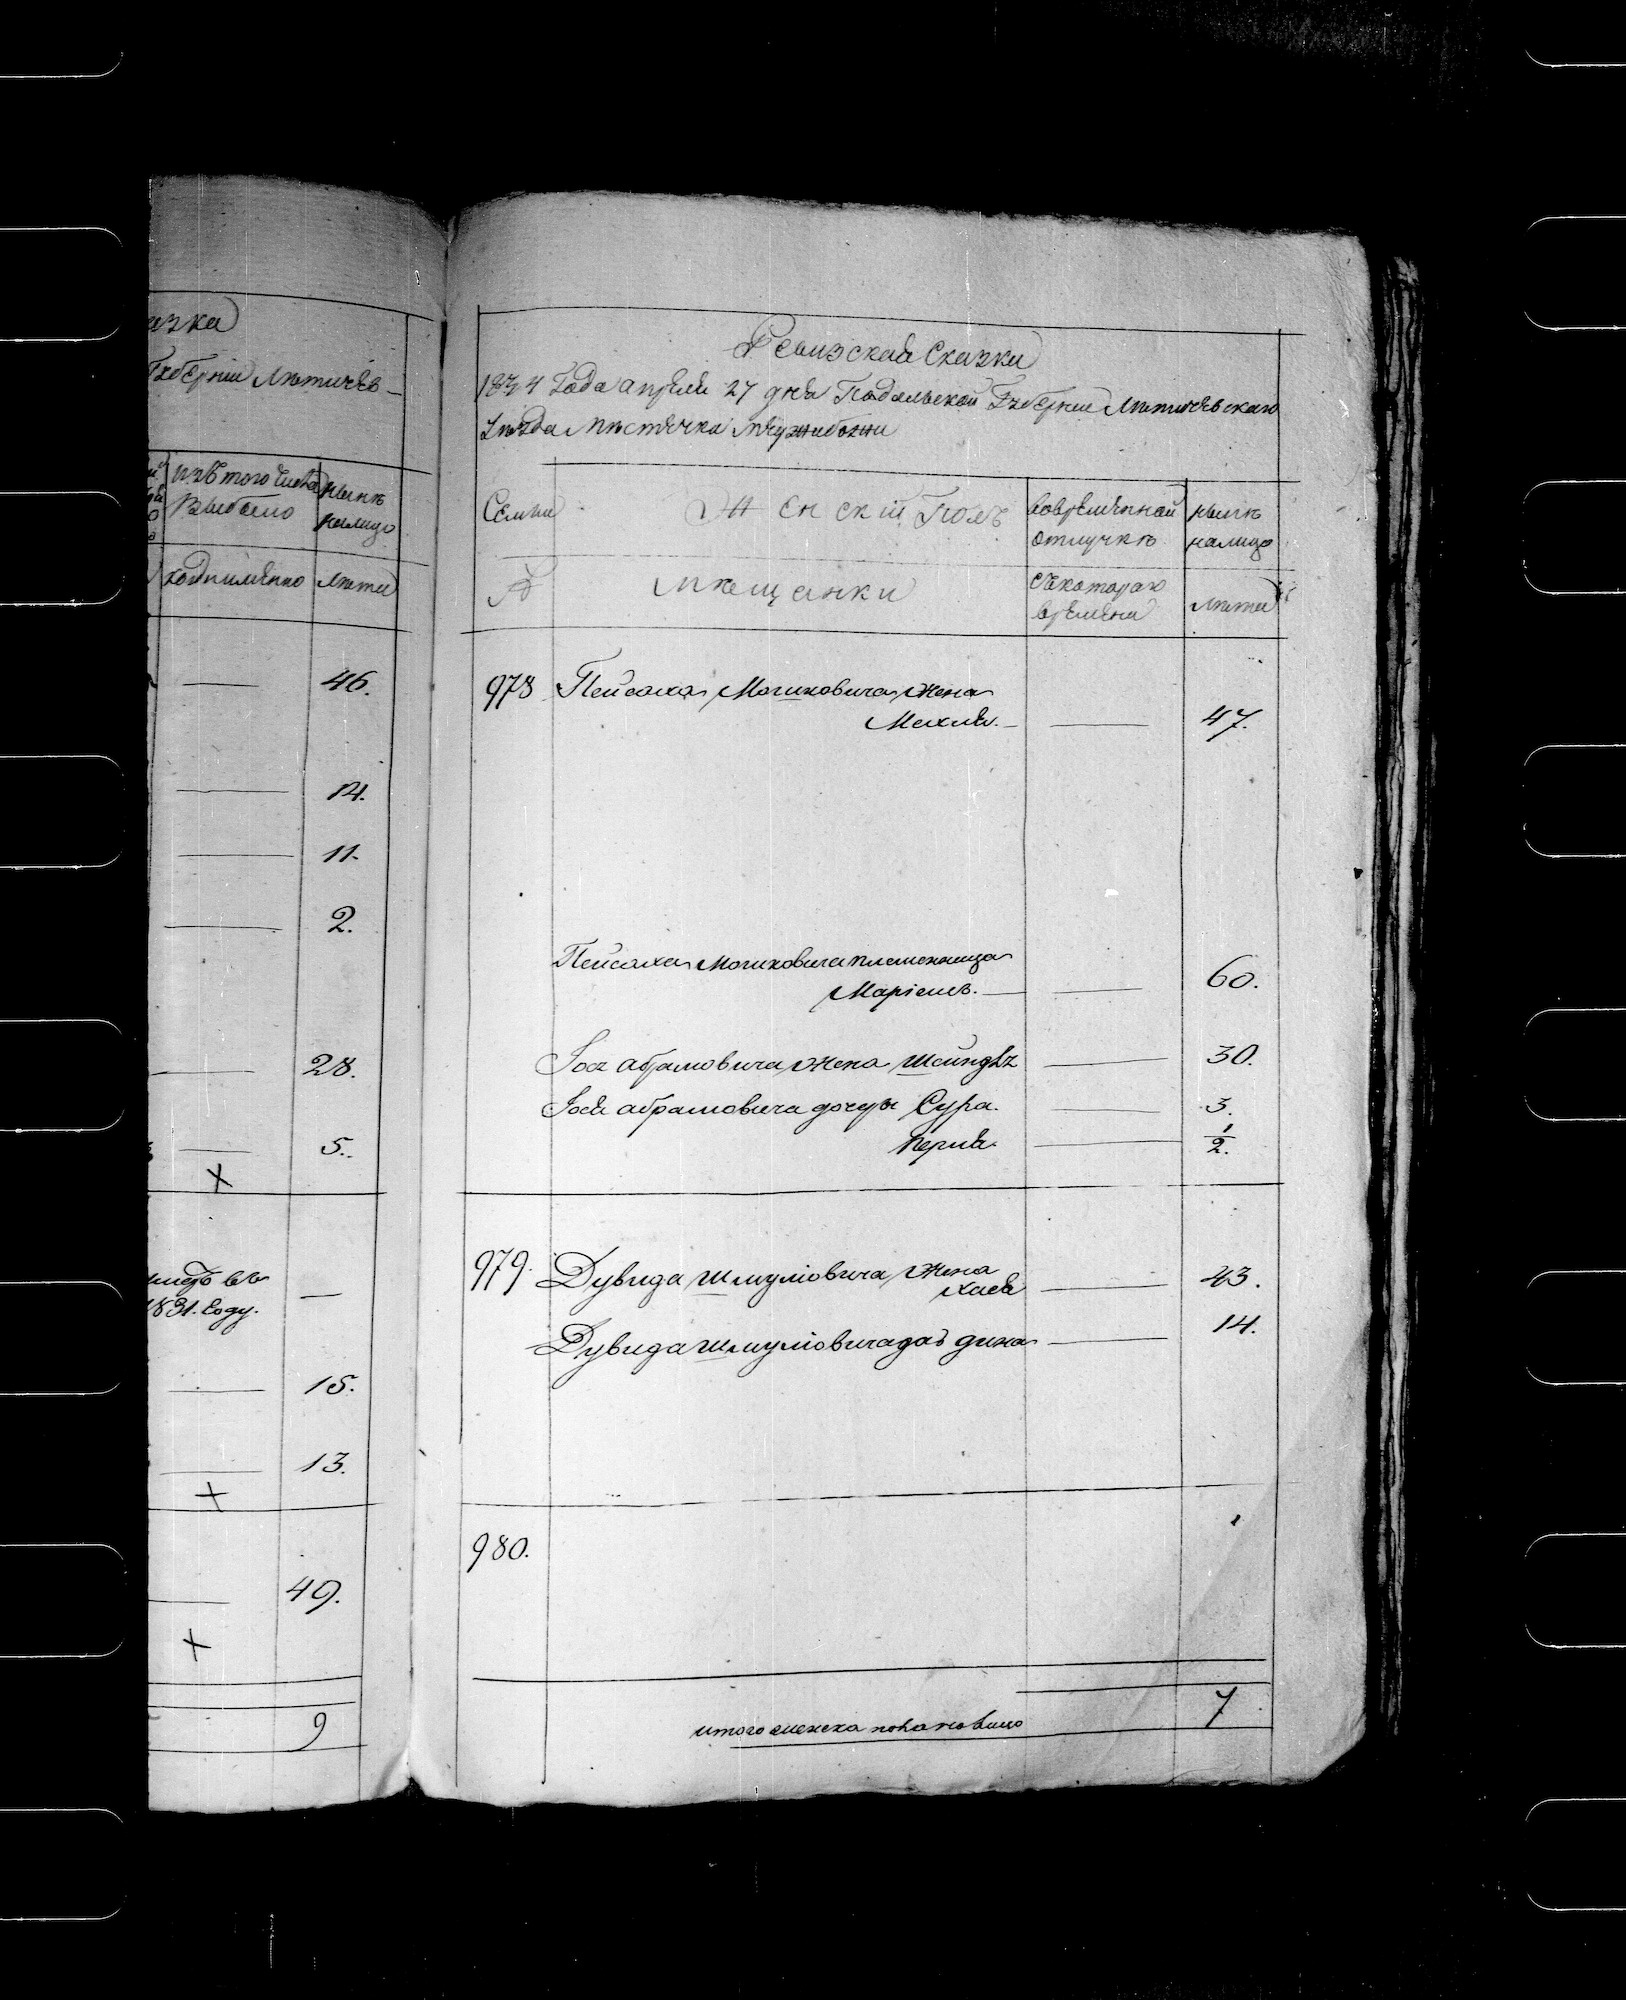 азка
Губерніи Летичев
изъ того числа
выбыло
ныне
налицо
когда именно
лета
46.
14.
11.
2.
28.
5.
въ
1831. году.
15.
13.
49.
9
Ревизская Сказка
1834 Года апреля 27 дня Подольской Губерніи Летичевскаго
уезда местечка Межибожи
Семьи
Женскій Полъ
во временной
отлучке
ныне
налицо
№
мещанки
съ котораго
времени
лета
978 Пейсаха Мошковича жена
Мехля. 47.
Пейсаха Мошковича племенница
Маріемъ. 60.
Іося абрамовича жена Шейндля 30.
Іося абрамовича дочери Сура. 3.
Перля. 1/2.
979. Дувида Шмуліовича жена
Хая 43.
Дувида Шмуліовича до дина 14.
980.
итого женска пола на лицо 7